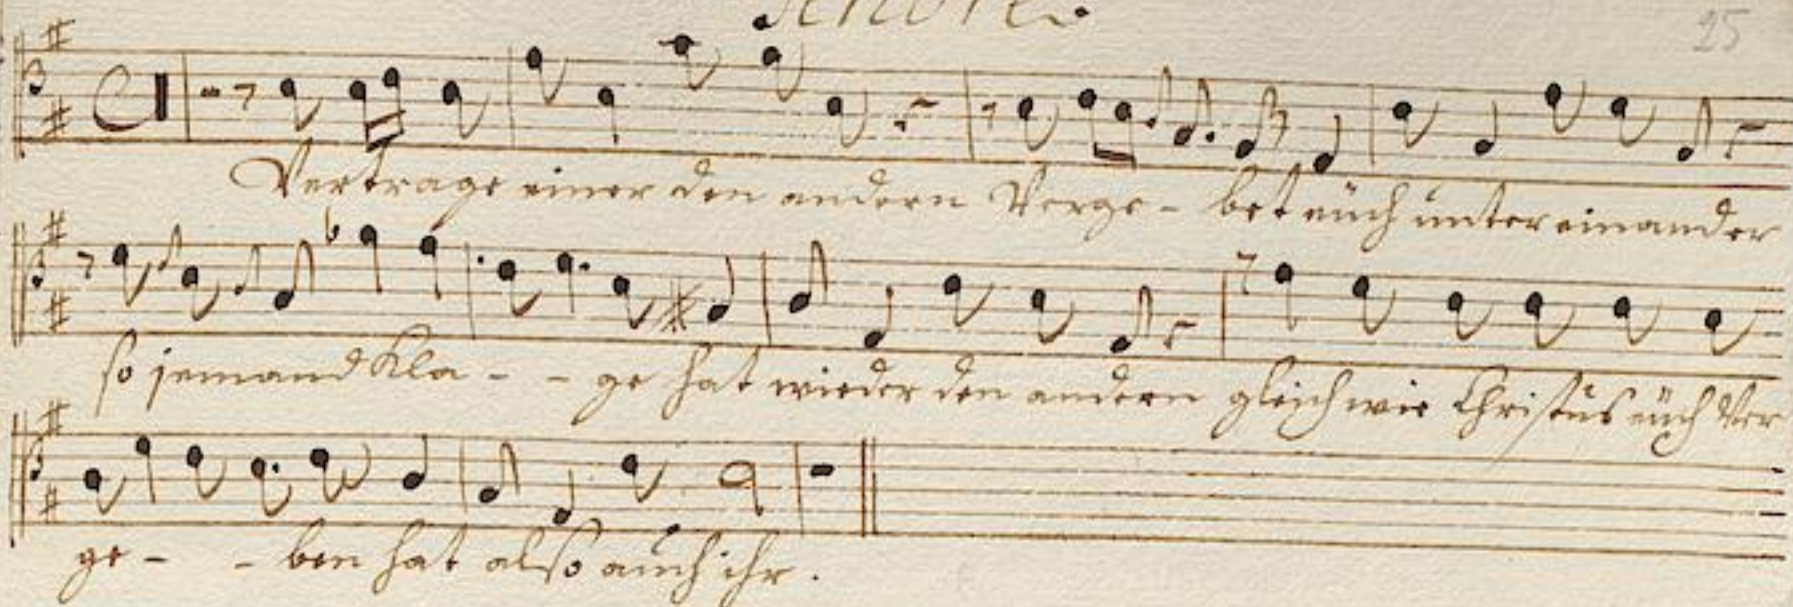 Tenore.
25
Vertrage einer den andern Verge - bet euch unter einander
so jemand Kla - - ge hat wieder den andern gleich wie Christus eüch Ver
ge - - ben hat also auch ihr.